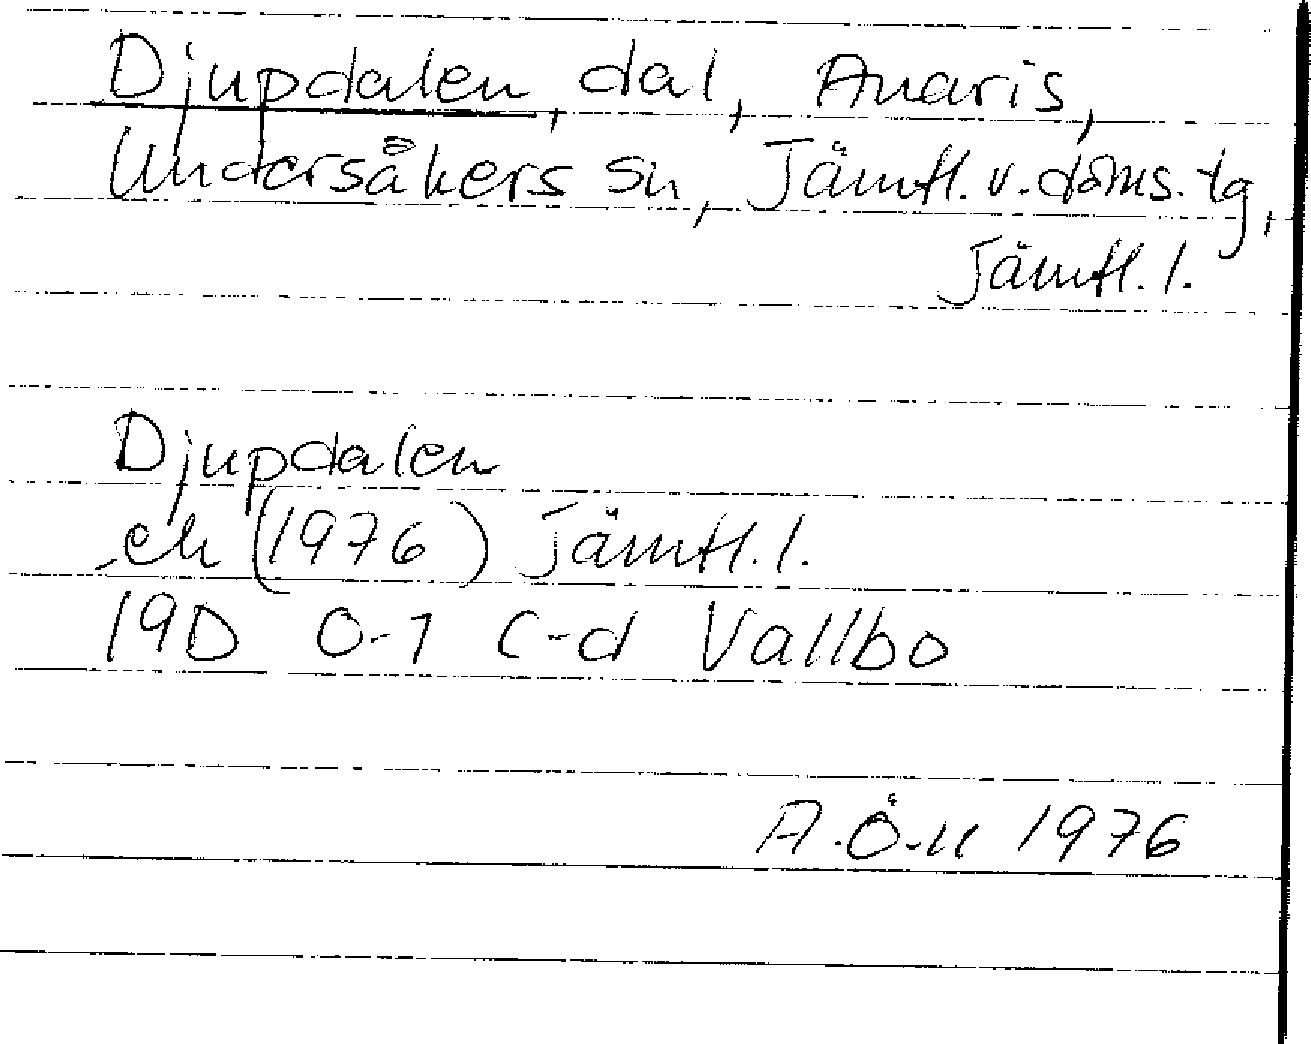 Djupdalen, dal, Anaris,
Undersåkers sn, Jämtl. v. doms. tg,
Jämtl. l.
Djupdalen
ek (1976) Jämtl. l.
19D 0-1 c-d Vallbo
A.Ö-n 1976